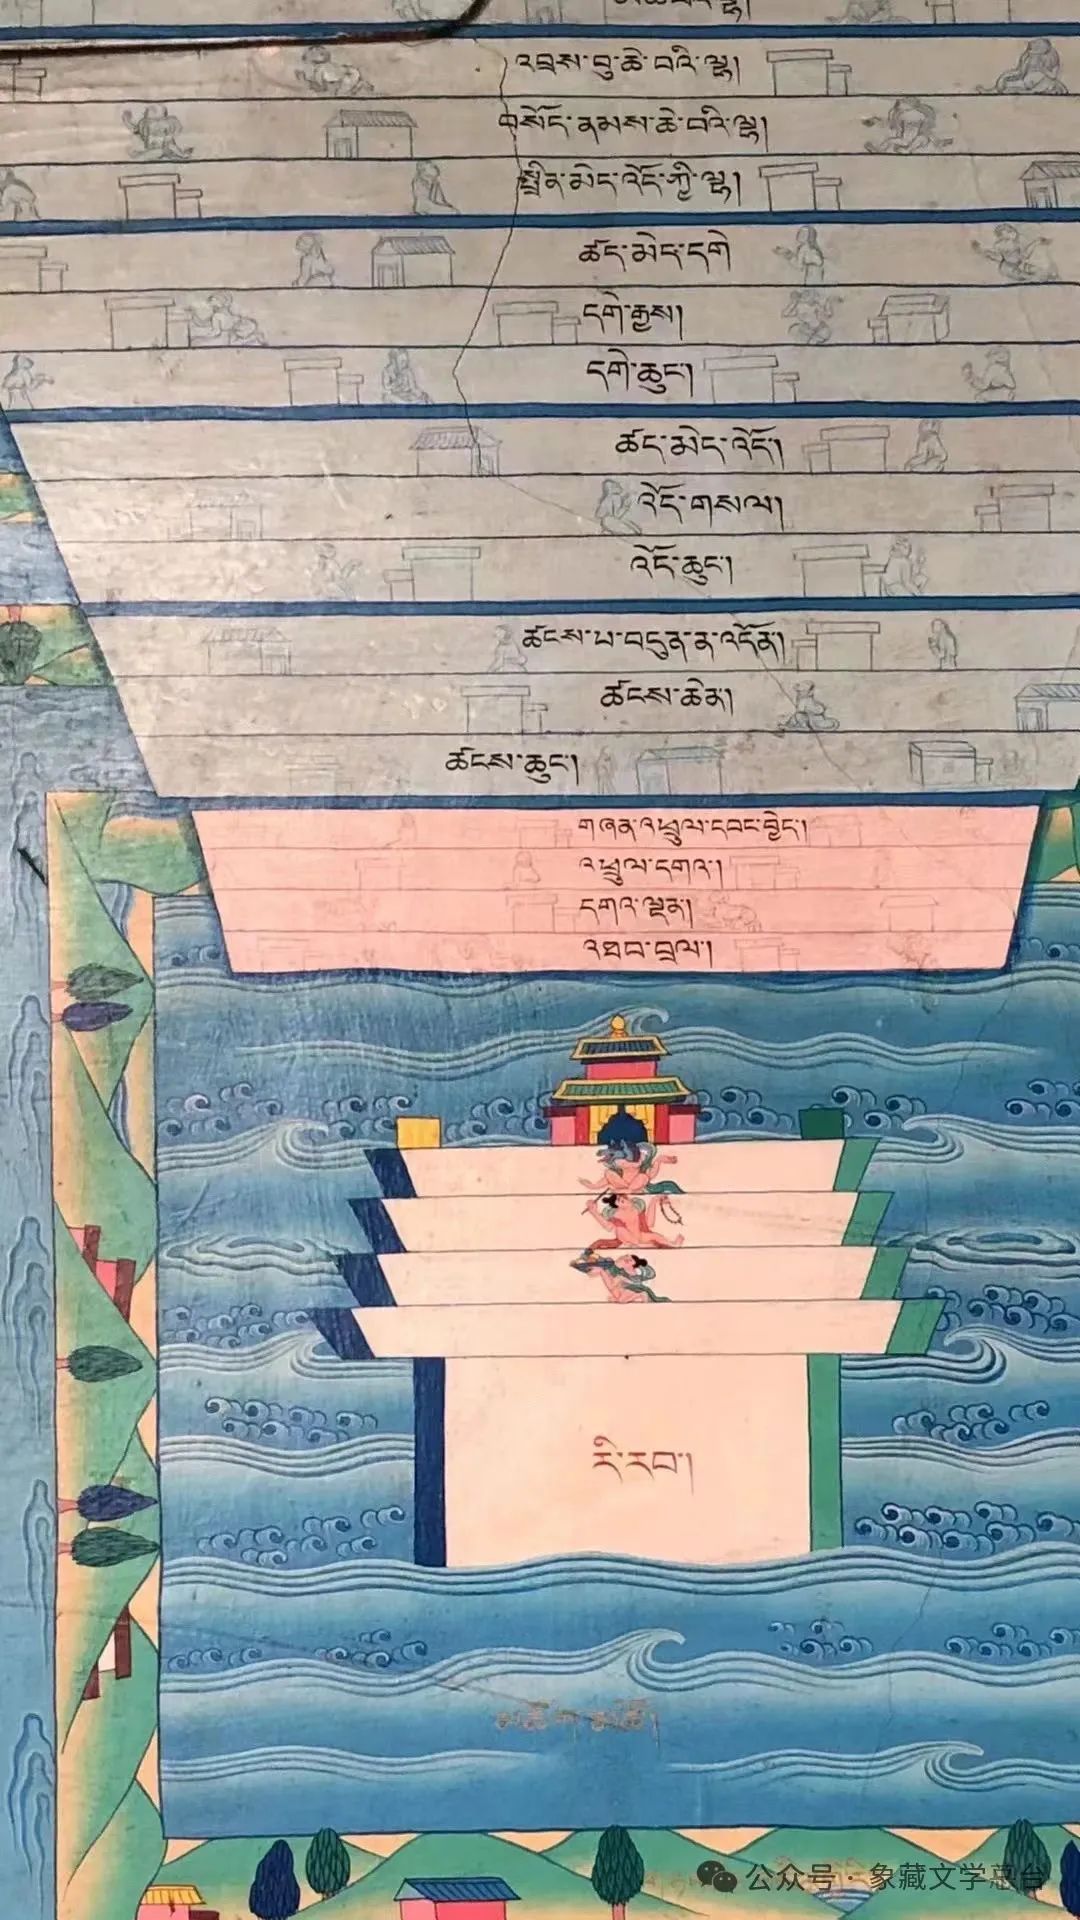 འབྲས་བུ་ཆེ་བའི་ལྷ།
གསོད་ནམས་ཆེ་བའི་ལྷ།
སྤྲིན་མེད་འོད་ཀྱི་ལྷ།
ཚད་མེད་དགེ
དགེ་རྒྱས།
དགེ་ཆུང་།
ཚད་མེད་འོད།
འོད་གསལ།
འོད་ཆུང་།
ཚངས་པ་བདུན་ན་འདོན།
ཚངས་ཆེན།
ཚངས་ཆུང་།
གཞན་འཕྲུལ་དབང་བྱེད།
འཕྲུལ་དགའ།
དགའ་ལྡན།
འཐབ་བྲལ།
རི་རབ།
公众号·象藏文学总台